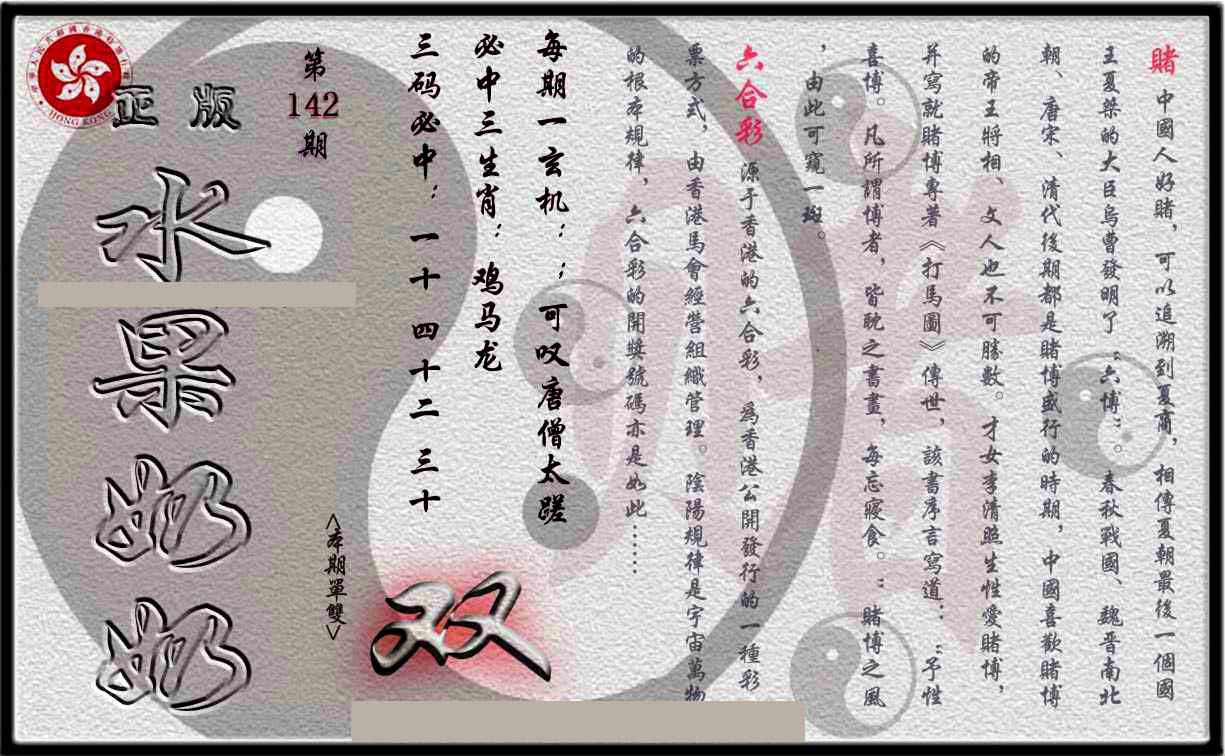 賭 中國人好賭，可以追溯到夏商，相傳夏朝最後一個國
王夏桀的大臣烏曹發明了“六博”。春秋戰國、魏晋南北
朝、唐宋、清代後期都是賭博盛行的時期，中國喜歡賭博
的帝王將相、文人也不可勝數。才女李清照生性愛賭博，
并寫就賭博專著《打馬圖》傳世，該書序言寫道：“予性
喜博。凡所謂博者，皆耽之書畫，每忘寢食。”賭博之風
，由此可窺一斑。
六合彩 源于香港的六合彩，為香港公開發行的一種彩
票方式，由香港馬會經營組織管理。陰陽規律是宇宙萬物
的根本規律，六合彩的開獎號碼亦是如此……
每期一玄机：；可叹唐僧太蹉
必中三生肖：鸡马龙
三码必中：一十 四十二 三十
第
142
期
双
<本期單雙>
正版
水果奶奶
HONG KONG